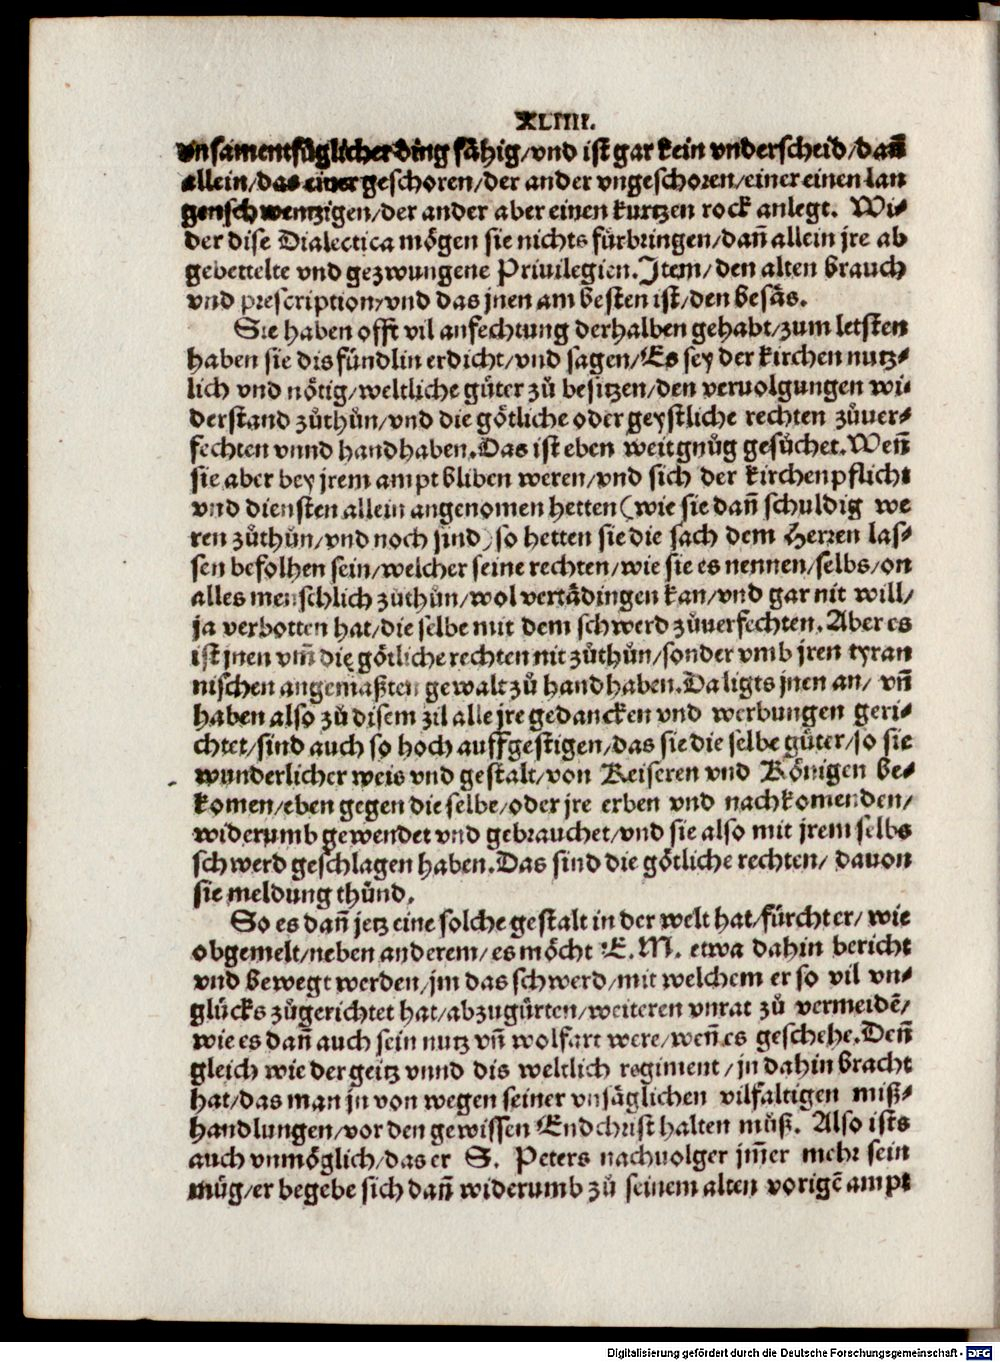 XLIIII.
vnsamentfüglicher ding fähig/vnd ist gar kein vnderscheid/dañ
allein/das einer geschoren/der ander vngeschoren/einer einen lan
genschwentzigen/der ander aber einen kurtzen rock anlegt. Wi⸗
der dise Dialectica mögen sie nichts fürbringen/dañ allein jre ab
gebettelte vnd gezwungene Priuilegien. Item/den alten brauch
vnd prescription/vnd das jnen am besten ist/den besäs.
Sie haben offt vil anfechtung derhalben gehabt/zum letsten
haben sie dis fündlin erdicht/vnd sagen/Es sey der kirchen nutz⸗
lich vnd nötig/weltliche güter zů besitzen/den veruolgungen wi⸗
derstand zůthůn/vnd die götliche oder geystliche rechten zůuer⸗
fechten vnnd handhaben. Das ist eben weit gnůg gesůchet. Weñ
sie aber bey jrem ampt bliben weren/vnd sich der kirchenpflicht
vnd diensten allein angenomen hetten (wie sie dañ schuldig we
ren zůthůn/vnd noch sind) so hetten sie die sach dem Herren las⸗
sen befolhen sein/welcher seine rechten/wie sie es nennen/selbs/on
alles menschlich zůthůn/wol vertädingen kan/vnd gar nit will/
ja verbotten hat/die selbe mit dem schwerd zůuerfechten. Aber es
ist jnen vm̃ die götliche rechten nit zůthůn/sonder vmb jren tyran
nischen angemaßten gewalt zů handhaben. Da ligts jnen an/ vñ
haben also zů disem zil alle jre gedancken vnd werbungen geri⸗
chtet/sind auch so hoch auffgestigen/das sie die selbe güter/so sie
wunderlicher weis vnd gestalt/von Keiseren vnd Königen be⸗
komen/eben gegen die selbe/oder jre erben vnd nachkomenden/
widerumb gewendet vnd gebrauchet/vnd sie also mit jrem selbs
schwerd geschlagen haben. Das sind die götliche rechten/ dauon
sie meldung thůnd.
So es dañ jetz eine solche gestalt in der welt hat/fürcht er/ wie
obgemelt/neben anderem/es möcht E. M. etwa dahin bericht
vnd bewegt werden/jm das schwerd/mit welchem er so vil vn⸗
glücks zůgerichtet hat/abzugürten/weiteren vnrat zů vermeidē/
wie es dañ auch sein nutz vñ wolfart were/weñ es geschehe. Deñ
gleich wie der geitz vnnd dis weltlich regiment/jn dahin bracht
hat/das man jn von wegen seiner vnsäglichen vilfaltigen miß⸗
handlungen/vor den gewissen Endchrist halten můß. Also ists
auch vnmöglich/das er S. Peters nachuolger jm̃er mehr sein
müg/er begebe sich dañ widerumb zů seinem alten vorigē ampt
Digitalisierung gefördert durch die Deutsche Forschungsgemeinschaft - DFG